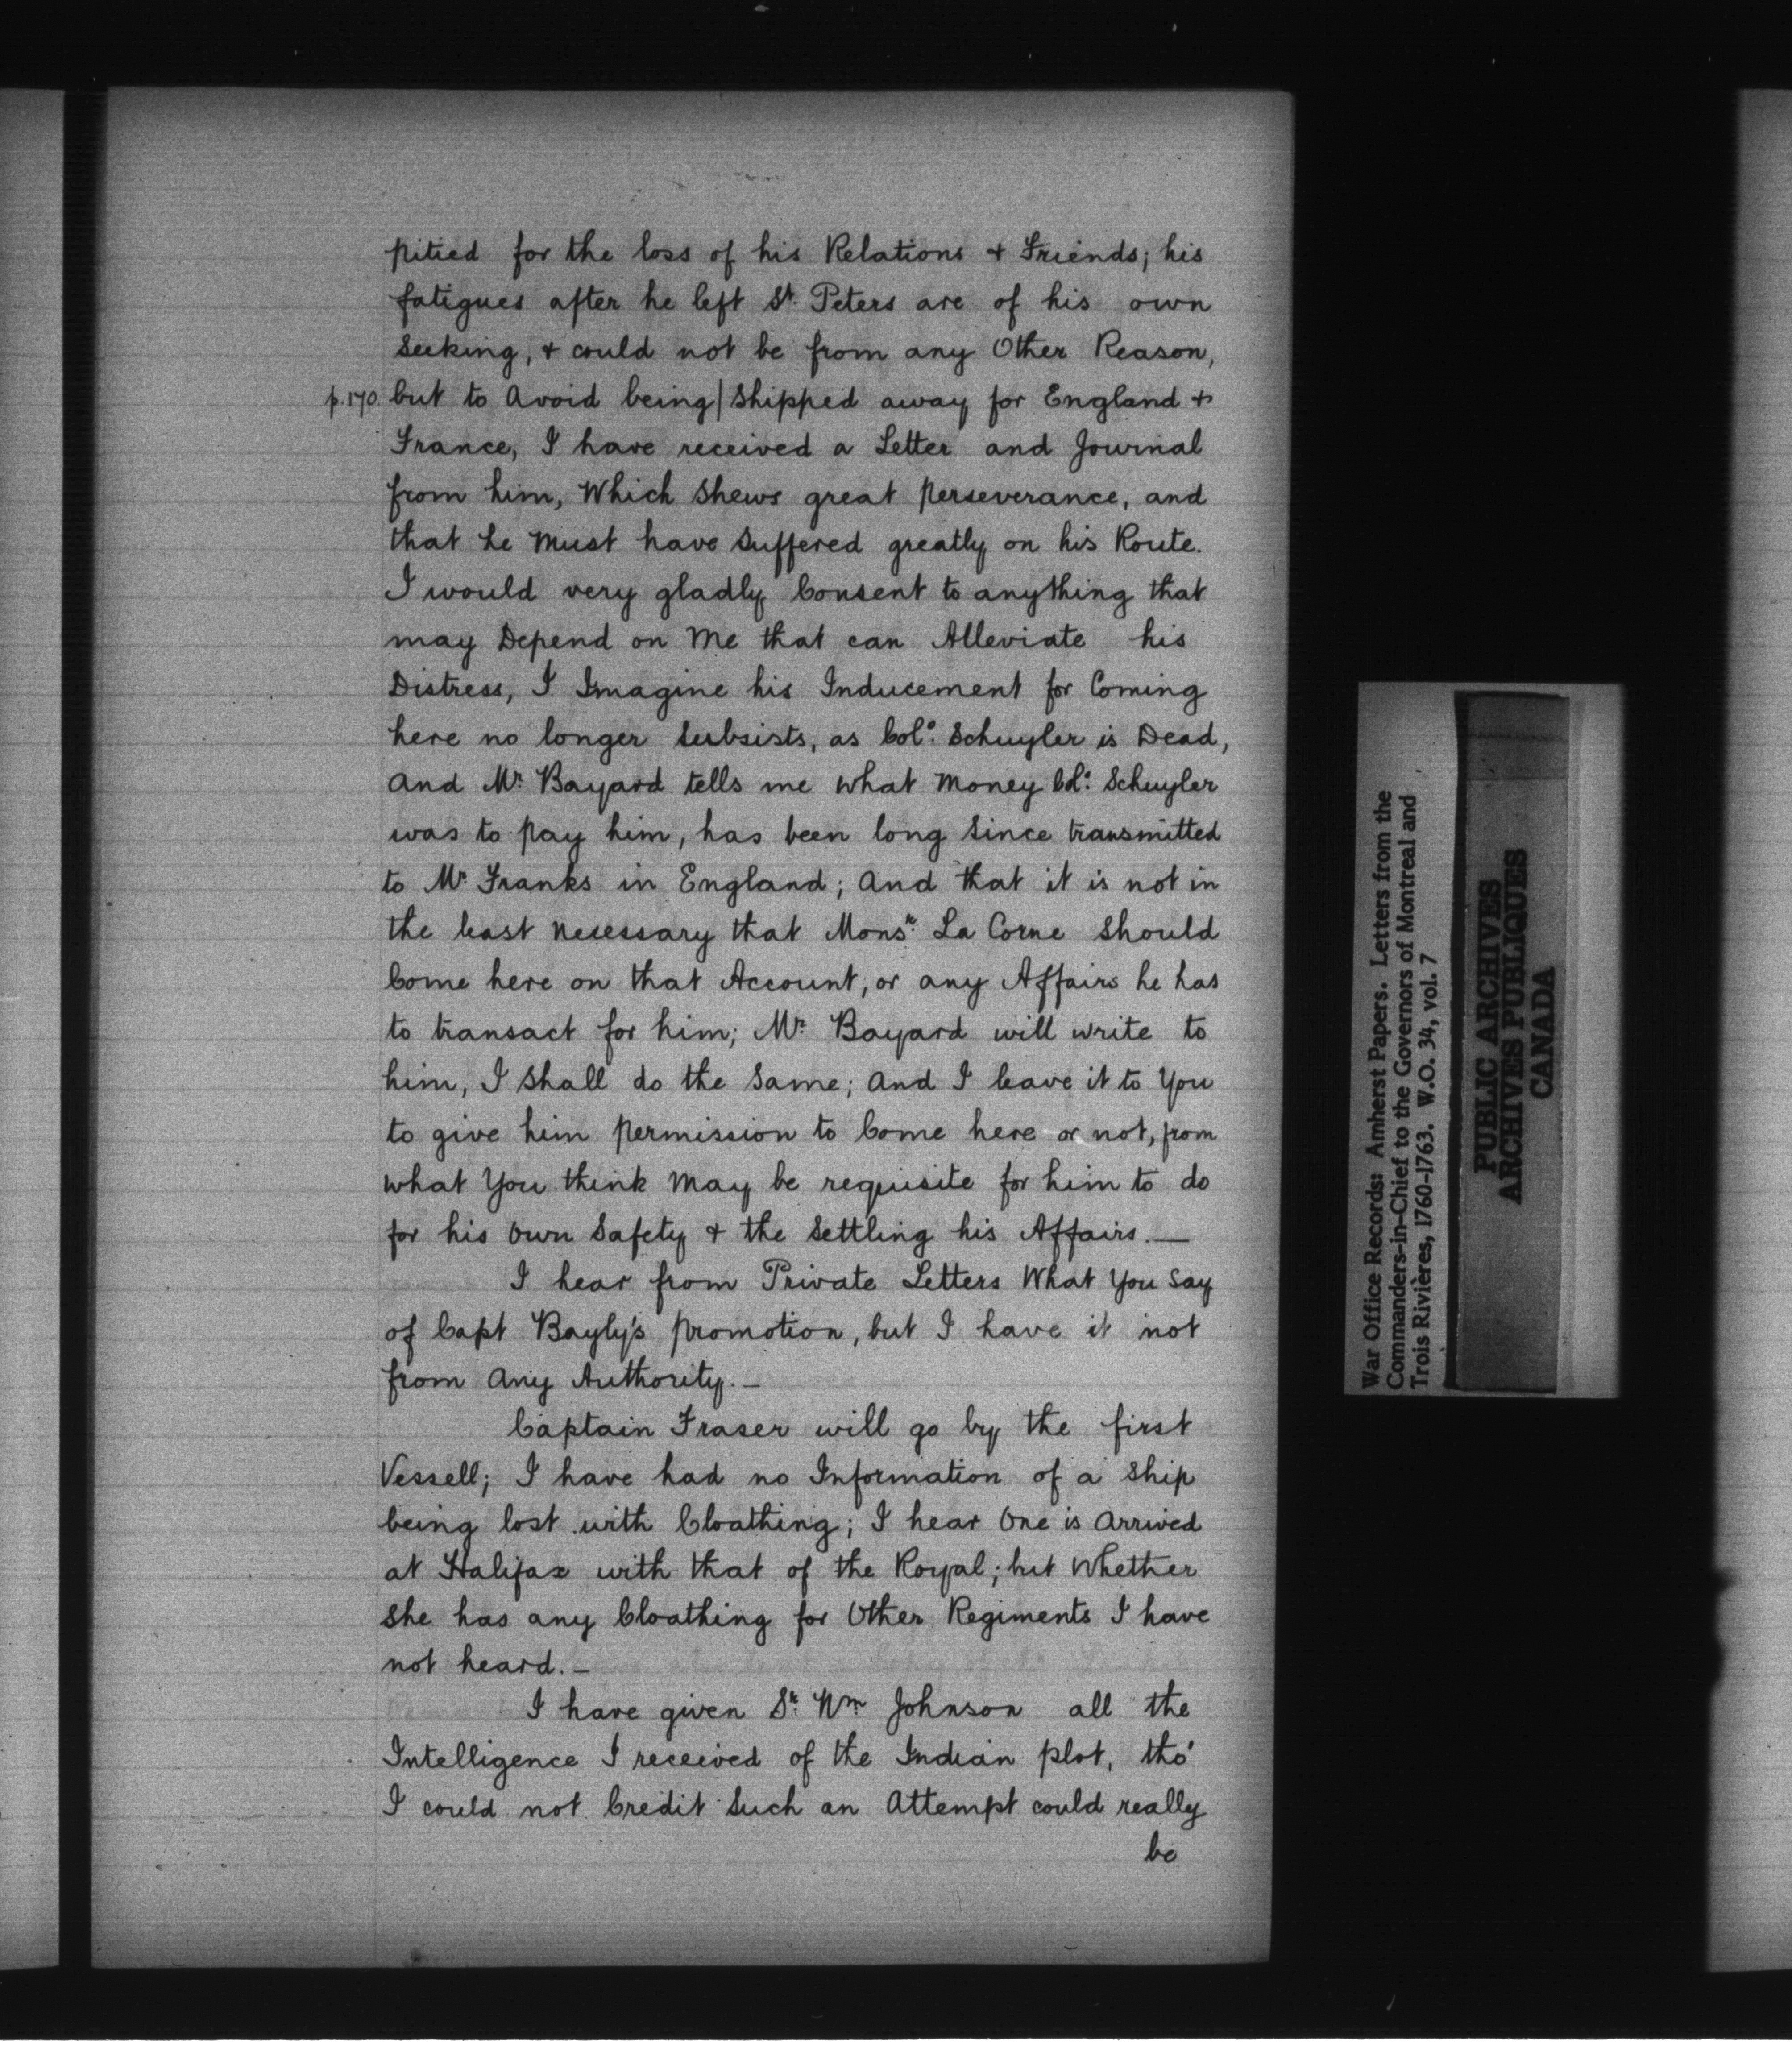 pitied for the loss of his Relations & Friends; his
fatigues after he left St. Peters are of his own
Seeking, & could not be from any Other Reason,
p.170. but to Avoid being| Shipped away for England &
France, I have received a Letter and Journal
from him, Which Shews great perseverance, and
that he Must have Suffered greatly on his Route.
I would very gladly Consent to anything that
may Depend on Me that can Alleviate his
Distress, I Imagine his Inducement for Coming
here no longer Subsists, as Colo. Schuyler is Dead,
And Mr. Bayard tells me what Money Colo. Schuyler
was to pay him, has been long Since transmitted
to Mr. Franks in England; And that it is not in
the least Necessary that Monsr. La Corne Should
Come here on that Account, or any Affairs he has
to transact for him; Mr. Bayard will write to
him, I Shall do the Same; And I leave it to You
to give him permission to Come here or not, from
what You think May be requisite for him to do
for his Own Safety & the Settling his Affairs.—
I hear from Private Letters What You Say
of Capt Bayly's promotion, but I have it not
from Any Authority.—
Captain Fraser will go by the first
Vessell; I have had no Information of a Ship
being lost with Cloathing; I hear One is Arrived
at Halifax with that of the Royal; but Whether
She has any Cloathing for Other Regiments I have
not heard.—
I have given Sr. Wm. Johnson all the
Intelligence I received of the Indian plot, tho'
I could not Credit Such an Attempt could really
be
War Office Records: Amherst Papers. Letters from the
Commanders-in-Chief to the Governors of Montreal and
Trois Rivières, 1760-1763. W.O. 34, vol. 7
PUBLIC ARCHIVES
ARCHIVES PUBLIQUES
CANADA